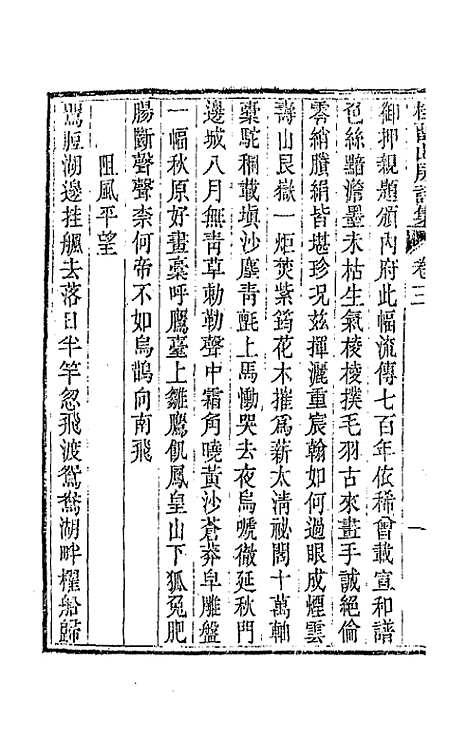 山房詩集 卷三
一
御押親題頒內府此幅流傳七百年依稀會載宣和譜
色絲黯澹墨未枯生氣棱棱撲毛羽古來畫手誠絕倫
零綃賸絹皆堪珍況茲揮灑重宸翰如何過眼成煙雲
壽山艮嶽一炬焚紫筠花木摧為薪太清祕閣十萬軸
橐駝稛載塡沙塵靑氈上馬慟哭去夜烏啼徹延秋門
邊城八月無靑草勅勒聲中霜角曉黃沙蒼莽皁雕盤
一幅秋原好畫稾呼鷹臺上雛鷹飢鳳皇山下狐兔肥
腸斷聲聲柰何帝不如烏鵲向南飛
阻風平望
鶯脰湖邊挂颿去落日半竿忽飛渡鴛鴦湖畔櫂船歸